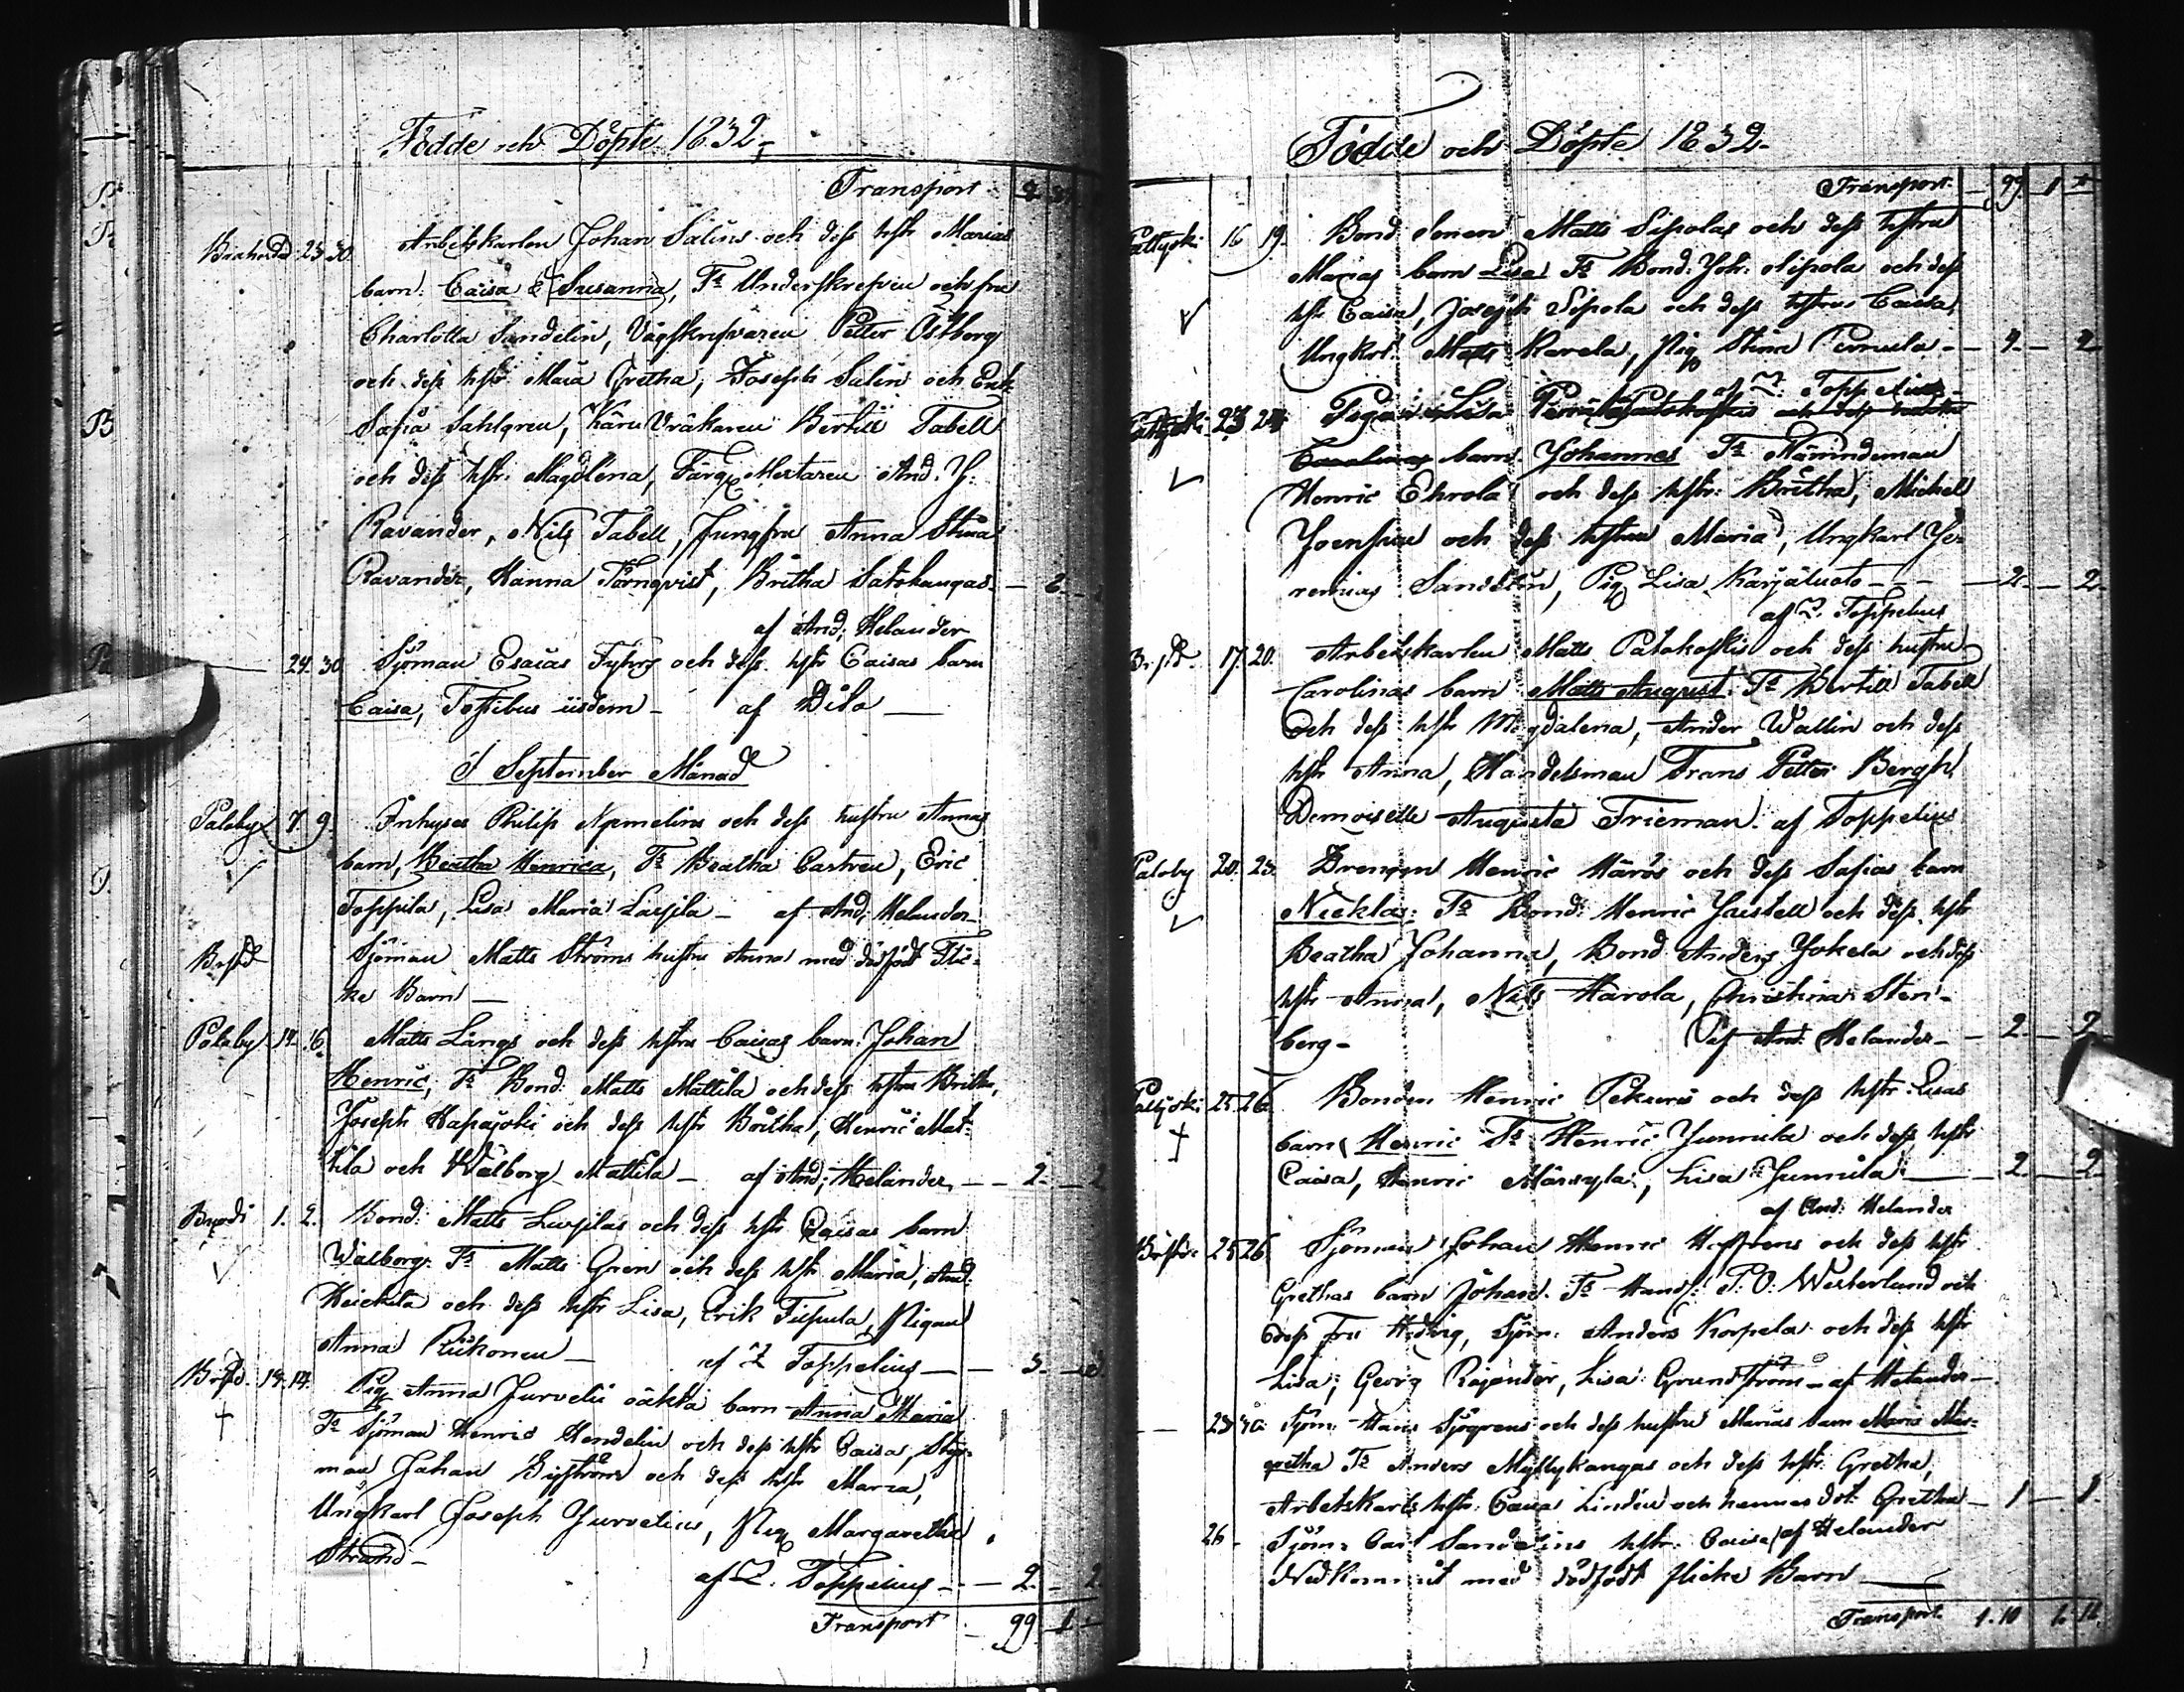 Födde och Döpte 1832.
Transport
Brahestad 23 30. Arbetskarlen Johan Salins och dess hstr Marias
barn: Caisa & Susanna, Ts Underskrefven och fru
Charlotta Sandelin, Vågskrifvaren Petter Östberg
och dess hstr Maia Gretha, Joseph Salin och Enk.
Safia Sahlgren, Tabell
och dess hstr. Magdlena, And. H.
Ravander, Nils Tabell, Jungfru Anna Stina
Ravander, Hanna Törnqvist, Britha Satokangas. — 6.
af And. Helander
— 24. 30 Sjöman Esaias Fyhrs och dess hstr Caisas barn
Caisa, Testibus iisdem — af Dito —
I September Månad
Paloby 7. 9. Inhyses Philip och dess hustru Annas
barn, Beatha Henrica, Ts Beatha Castren, Eric
Toppila, Lisa Maria — af And. Helander
Brstd Sjöman Matts Ströms hustru Anna med dödfödt Flic-
ke Barn —
Paloby 14. 16. Matts Längs och dess hstru Caisas barn. Johan
Henric, Ts Bond. Matts Mattila och dess hstru Britha,
Joseph Hapajoki och dess hstr Britha, Henric Mat-
tila och Wålborg Mattila — af And. Helander. — 2. — 2
1. 2. Bond. Matts och dess hstr Caisas barn
Walborg. Ts Matts Gren och dess hstr Maria, And.
Heickila och dess hstr Lisa, Erik Pigan
Anna — af Z Toppelius — 3.
Brstd. 13. 14. Pig. Anna Jurvelii oäkta barn Anna Maria
Ts Sjöman Henric Hendelin och dess hstr Caisa, Styr-
man Johan och dess hstr Maria,
Ungkarl Joseph Jurvelius, Pig. Margaretha
Strand —
af Z. Toppelius — 2. — 2.
Transport — 99 — 1 —
Födde och Döpte 1832.
Transport — 99. 1
Pattijoki 16 19. Bond. Sonen Matts Sipolas och dess hstru
Marias barn Lisa Ts Bond. Joh. Sipola och dess
hstr Caisa, Joseph Sipola och dess hstru Caisa,
Ungkrl. Matts Karela, Pig. Stina — 2. — 2
af Z. Toppelius
Pattijoki 23 24 Pigan Lisa
Carolinas barn. Johannes Ts Nämndeman
Henric Ehrola och dess hstr. Britha, Michell
Joensuu och dess hstru Maria, Ungkarl Je-
remias Sandelin, Pig. Lisa Karjaluoto — — 2. — 2.
af Z. Toppelius
Brstd. 17. 20. Arbetskarlen Matts Patokoskis och dess hustru
Carolinas barn Matts August. Ts Bertill Tabell
Och dess hstr Magdalena, Ander Wallin och dess
hstr Anna, Handelsman Frans Petter Bergh,
Demoiselle Augusta Frieman. af Toppelius
Paloby 20. 23. Drengen Henric Häros och dess Safias barn
Nicklas. Ts Bond. Henric Jaistell och dess hstr
Beatha Johanna, Bond Anders Jokela och dess
hstr Anna, Nils Harola, Christina Sten-
berg — af And. Helander — 2. — 2
Pattijoki 25 26. Bonden Henric Pekuris och dess hstr. Lisas
barn Henric Ts Henric Junnula och dess hstr
Caisa, Henric Lisa Junnula — 2 — 2
af And. Helander
25 26. Sjöman Johan Henric och dess hstr
Grethas barn Johan. Ts Handl. P. O. Westerlund och
dess fru Hedvig, Sjöm. Anders Korpela och dess hstr
Lisa, Georg Rajander, Lisa Grundström — af Helander —
— 23 30. Sjöm. Hans Sjögrens och dess hustru Marias barn Maria Mar-
gretha Ts Anders Myllykangas och dess hstr. Gretha,
Arbetskarls hstr. Caisa Linden och hennes dot. Gretha — 1 — 1.
26 — Sjöm. Carl Sandelins hstr. Caisa af Helander
Nedkommit med dödfödt flicke Barn —
Transport 1.10